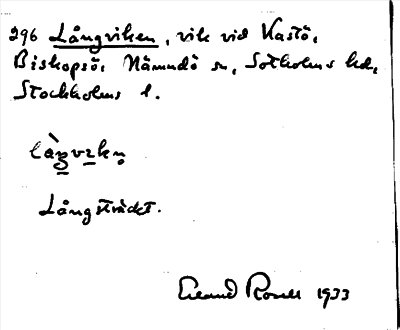 296 Långviken, vik vid Kastö,
Biskopsö, Nämndö sn, Sotholms hd,
Stockholms l.
làŋvikn̥
Långsträckt.
Erland Rosell 1933